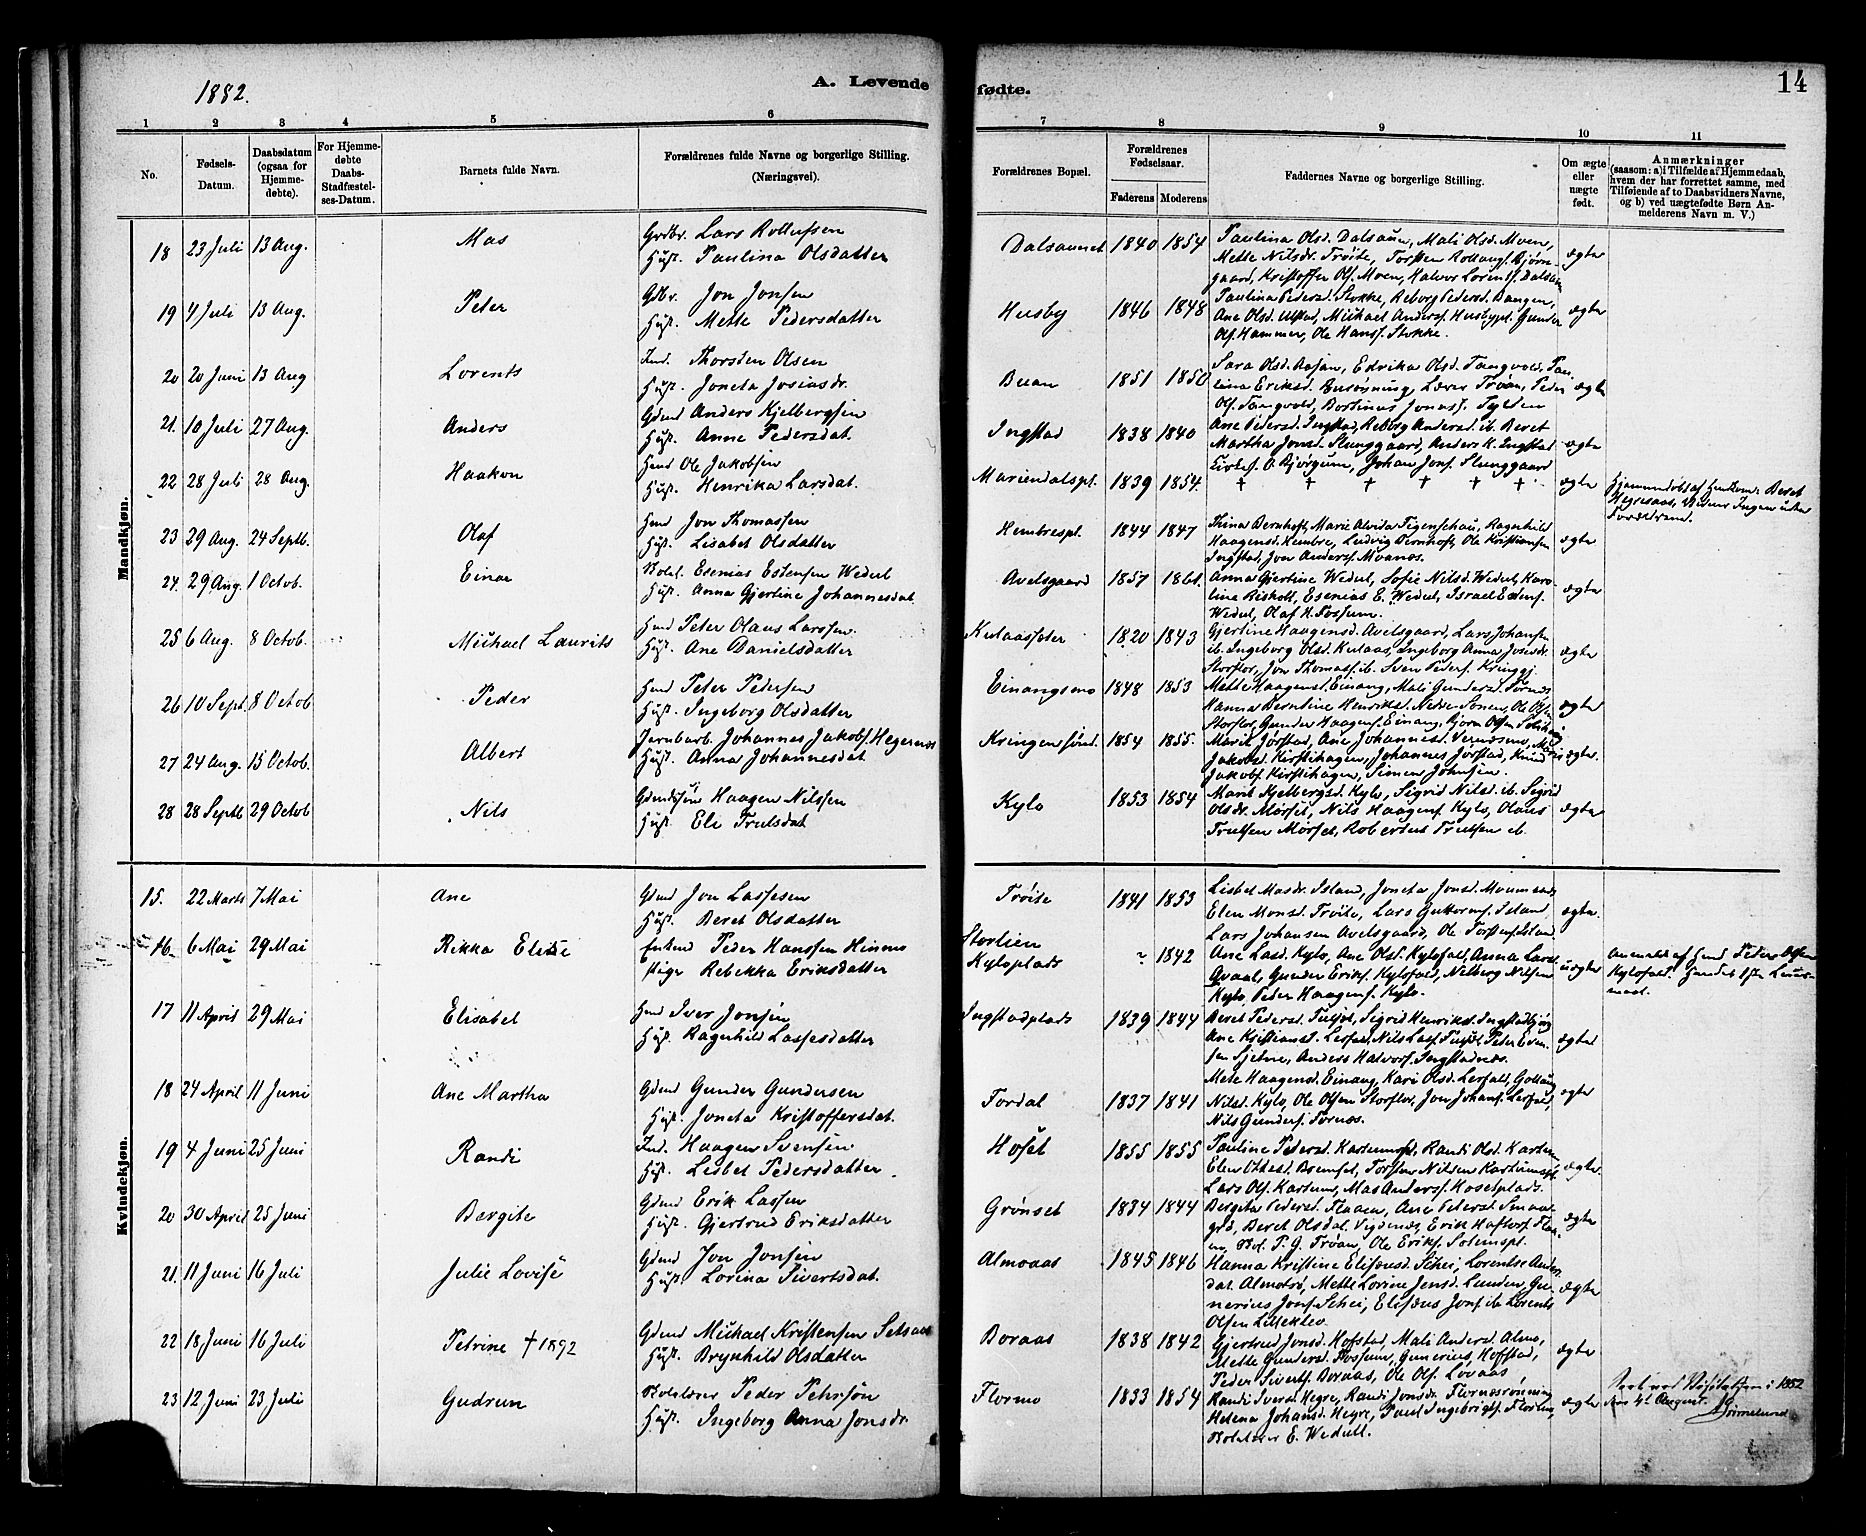 1882.
A. Levende
fødte.
14
1 2 3 4 5 6 7 8 9 10 11
No.
Fødsels-
Datum.
Daabsdatum
(ogsaa for
Hjemme-
døbte).
For Hjemme-
døbte
Daabs-
Stadfæstel-
ses-Datum.
Barnets fulde Navn.
Forældrenes fulde Navne og borgerlige Stilling.
(Næringsvei).
Forældrenes Bopæl.
Forældrenes
Fødselsaar.
Faderens Moderens
Faddernes Navne og borgerlige Stilling.
Om ægte
eller
uægte
født.
Anmærkninger
(saasom: a) i Tilfælde af Hjemmedaab,
hvem der har forrettet samme, med
Tilføiende af to Daabsvidners Navne,
og b) ved uægtefødte Børn An-
melderens Navn m. V.)
Mandkjøn.
18 23 Juli 13 Aug. Mas
Gdbr. Lars Rollufsen
Hust. Paulina Olsdatter
Dalsaunet 1840 1854
Paulina Olsd. Dalsaun, Mali Olsd. Moen,
Mette Nilsdr. Trøite, Torsten Rollaugs. Bjørn-
gaard, Kristoffer Ols. Moen, Halvor Lorents. Dalsaun
ægte
19 4 Juli 13 Aug. Peter
Gdbr. Jon Jonsen
Hust. Mette Pedersdatter
Husby 1846 1848
Paulina Pedersd. Stokke, Reborg Pedersd. Bangen,
Ane Olsd. Ulstad, Michael Anders. Husbypl. Gunder
Ols. Hammer, Ole Hans. Stokke.
ægte
20 20 Juni 13 Aug Lorents
Ind. Thorsten Olsen
Hust. Joneta Josiasdr.
Buan 1851 1850
Sara Olsd. Aasan, Edvika Olsd. Tangvold, Pau-
lina Eriksd. Burønning, Lærer Trøan, Peder
Ols. Tangvold, Bortinus Jonas. Tylden
ægte
21. 10 Juli 27 Aug. Anders
Gdmd Anders Kjelbergsen
Hust. Anne Pedersdat.
Ingstad 1838 1840
Ane Pedersd. Ingstad, Reborg Andersd. ib. Beret
Martha Jonsd. Slunggaard, Anders K. Ingstad
Kirkes. O. Bjørgum, Johan Jons. Slunggaard
ægte
22 28 Juli 28 Aug. Haakon
Hmd Ole Jakobsen
Hust. Henrika Larsdat.
Mariendalspl. 1839 1854.
† † † † † †
ægte
Hjemmedøbt af Beret
Hegresaat, Vidner Ingen uden
Forældrene.
23 29 Aug. 24 Septb. Olaf
Hmd Jon Thomassen
Hust. Lisabet Olsdatter
Hembrespl. 1844 1847
Thina Bernhoft, Marie Alvida Tigenschau, Ragnhild
Haagensd. Hembre, Ludvig Bernhoft, Ole Kristiansen
Ingstad, Jon Anders. Moanæs.
ægte
24. 29 Aug. 1 Octob. Einar
Esenias Estensen Wedul
Hust. Anna Gjertine Johannesdat.
Avelsgaard 1857 1861.
Anna Gjertine Wedul, Sofie Nilsd. Wedul, Karo-
line Riskolt, Esenias E. Wedul, Israel Estens.
Wedul, Olaf H. Fossum.
ægte
25 6 Aug. 8 Octob. Michael Laurits
Hmd Peter Olaus Larssen.
Hust. Ane Danielsdatter
Kulaasseter 1820 1843
Gjertine Haagensd. Avelsgaard, Lars Johansen
ib. Ingeborg Olsd. Kulaas, Ingeborg Anna Josevdr.
Storflor, Jon Thomass. ib. Sven Peders. Kringg.
ægte
26 10 Sept. 8 Octob Peder
Hmd Peter Pedersen
Hust. Ingeborg Olsdatter
Einangsmo 1848 1853
Mette Haagensd. Einang, Mali Gundersd. Fornæs
Hanna Berntine Henriksd. Nedre Sonen, Ole Ols.
Storflor, Gunder Haagens. Einang, Bjørn Olsen
ægte
27 24 Aug. 15 Octob. Albert
Jernbarb. Johannes Jakobs. Hegernæs
Hust. Anna Johannesdat.
Kringen sønd. 1854 1855.
Marit Jørstad, Ane Johannesd. Vernæsmo,
Jakobsd. Kirstihagen, Johannes Jørstad, Knud
Jakobs. Kirstihagen, Simen Johnsen.
ægte.
28 28 Septb 29 Octob Nils
Haagen Nilssen
Hust. Eli Trulsdat
Kylo 1853 1854
Marit Kjelbergsd. Kylo, Sigrid Nilsd. ib. Sigrid
Olsdr. Mørset, Nils Haagens. Kylo, Olaus
Trulsen Mørset, Robertus Trulsen ib.
ægte
Kvindekjøn.
15. 22 Marts 7 Mai Ane
Gdmd Jon Lassesen
Hust. Beret Olsdatter
Trøite 1841 1853
Lisbet Masdr. Island, Joneta Jonsd. Moumsaas
Elen Monsd. Trøite, Lars Guttorms. Island
Lars Johansen Avelsgaard, Ole Torstens. Island
ægte.
16. 6 Mai 29 Mai Rikka Elise
Enkemd Peder Hanssen Hinmo
Pige Rebekka Eriksdatter
Storlien
Kyloplads " 1842
Ane Lasd. Kylo, Ane Olsd. Kylofald, Anna Larsd.
Qvaal, Gunder Eriks. Kylofald, Nelberg Nilsen
Kylo, Peter Haagens. Kylo.
uægte
Anmeldt af Hmd. Peder Olsen
Kylofald.
17 11 April 29 Mai Elisabet
Hmd Iver Jonsen
Hust. Ragnhild Lassesdatter
Ingstadplads 1839 1844
Beret Pedersd. Fuglst, Sigrid Henriksd. Ingstadbjørg
Ane Kristiansd. Lerfald, Nils Las. Peter Even-
sen Fjelme, Anders Halvors. Ingstadnæs.
ægte
18 24 April 11 Juni Ane Martha
Gdmd Gunder Gundersen
Hust. Joneta Kristoffersdat.
Fordal 1837 1841
Mete Haagensd. Einang, Kari Olsd. Lerfald, Gollaug
Nilsd. Kylo, Ole Olsen Storflor, Jon Johans. Lerfald,
Nils Gunders. Fornæs.
ægte
19 4 Juni 25 Juni Randi
Ind. Haagen Svensen
Hust. Lisbet Pedersdatter.
Hofet 1855 1855
Pauline Pedersd. Kartumspl, Randi Olsd. Kartum,
Elen Ottesd. Bremset, Torsten Nilsen Kartumspl.
Lars Ols. Kartum, Mas Anders. Hosetplads.
ægte.
20 30 April 25 Juni Bergite
Gdmd Erik Lassen
Hust. Gjertrud Eriksdatter
Grønset 1834 1844
Bergeta Pedersd. Flaaen, Ane Pedersd. Smaa-
grd, Beret Olsdat. Vigdenæs, Erik Haftors. Flaa-
en, T. G. Trøan, Ole Eriks. Solemspl.
ægte
21. 11 Juni 16 Juli Julie Lovise
Gdmd Jon Jonsen
Hust. Lorina Sivertsdat.
Almoaas 1845 1846
Hanna Kristine Elisæusd. Schei, Lorentse Anders-
dat. Almotrø, Mette Lorine Jensd. Lunden, Gu-
nerius Jons. Schei, Elisæus Jons. ib. Lorents
Olsen Lilleklev.
ægte
22 18 Juni 16 Juli Petrine † 1892
Gdmd Michael Kristensen Setsaas
Hust. Brynhild Olsdatter
Boraas 1838 1842
Gjertrud Jonsd. Hofstad, Mali Andersd. Almo,
Mette Gundersd. Fossum, Gunerius Hoffstad,
Peder Siverts. Boraas, Ole Ols. Lovaas
ægte
23 12 Juni 23 Juli Gudrun
Peder Pehrsøn
Hust. Ingeborg Anna Jonsdr.
Flormo 1833 1854
Randi Iversd. Hegre, Randi Jonsdr. Flornæsrønning
Helena Johansd. Hegre, Paul Ingebrigts. Flormo,
E. Wedull.
ægte
Seet ved Visitatsen i 1882
den 4de August.